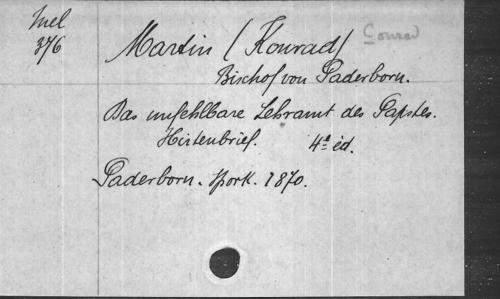 Mel
376
Martin (Konrad) Conrad
Bischof von Paderborn.
Das unfehlbare Lehramt des Papstes.
Hirtenbrief. 4e éd.
Paderborn. Spork. 1870.